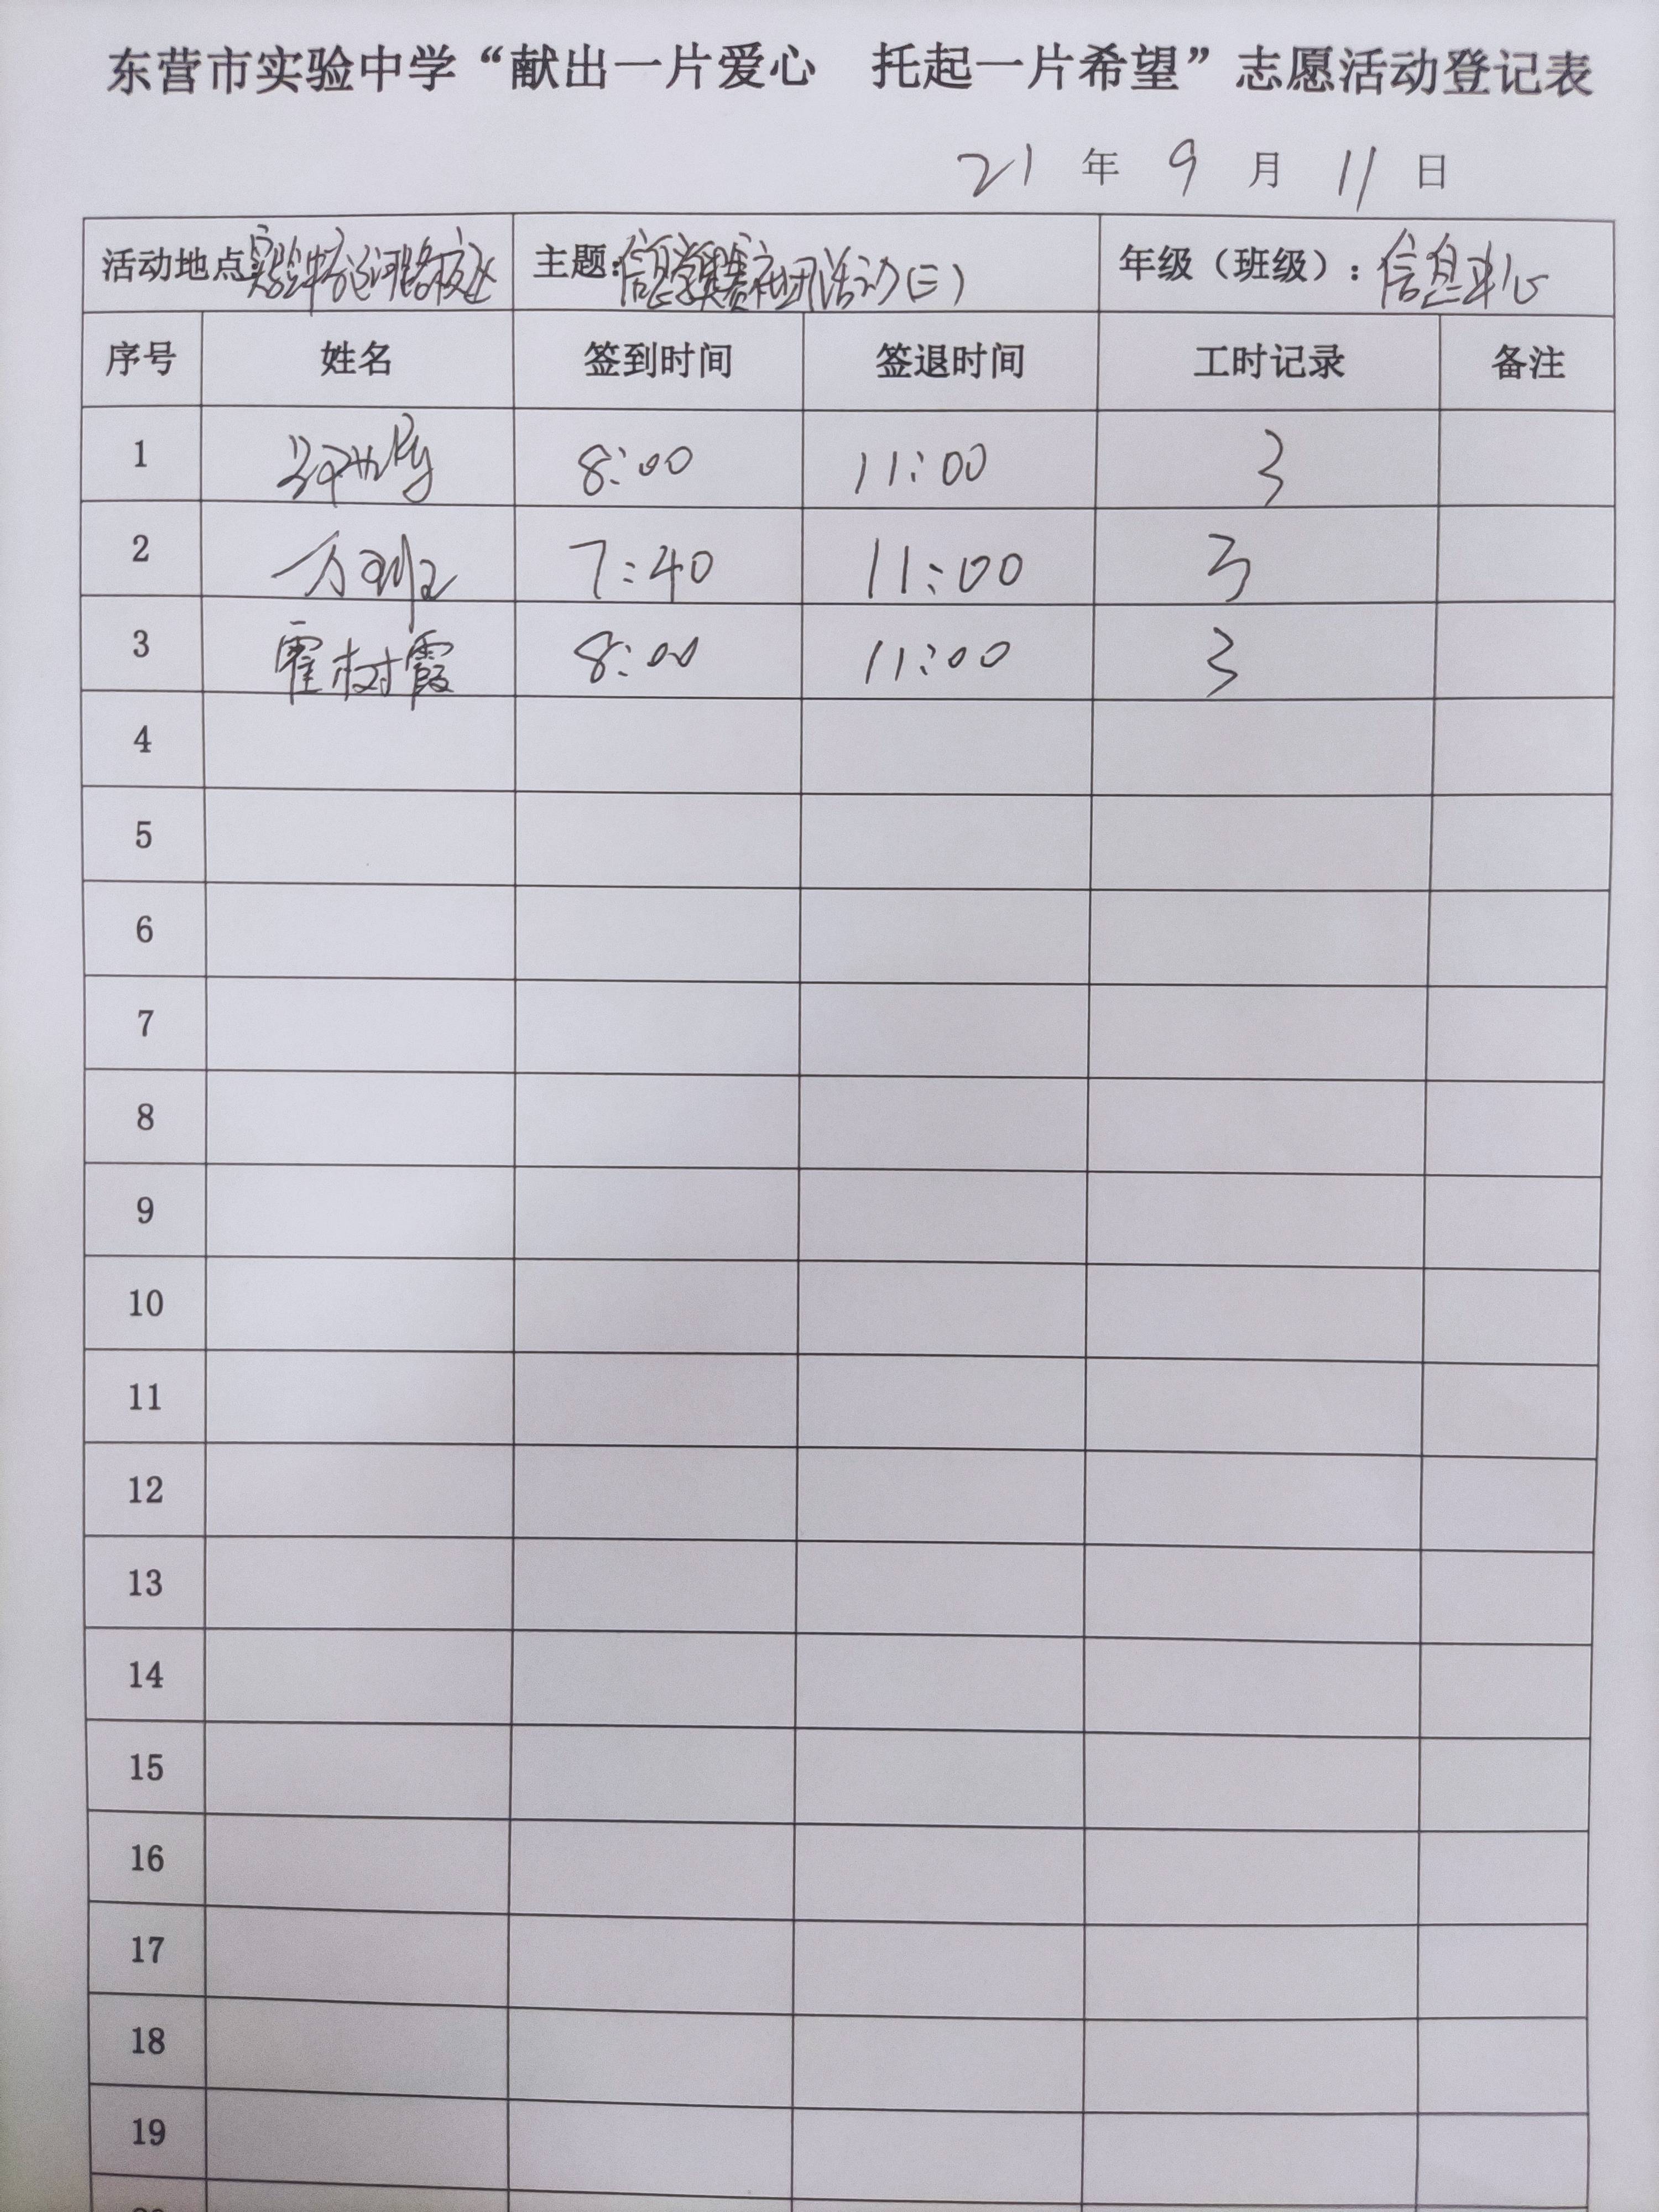 东营市实验中学“献出一片爱心 托起一片希望”志愿活动登记表
21 年 9 月 11 日
活动地点 实验中学运河路校区 主题:信息学竞赛社团活动(三) 年级(班级):信息中心
序号 姓名 签到时间 签退时间 工时记录 备注
1 8:00 11:00 3
2 7:40 11:00 3
3 霍树霞 8:00 11:00 3
4
5
6
7
8
9
10
11
12
13
14
15
16
17
18
19